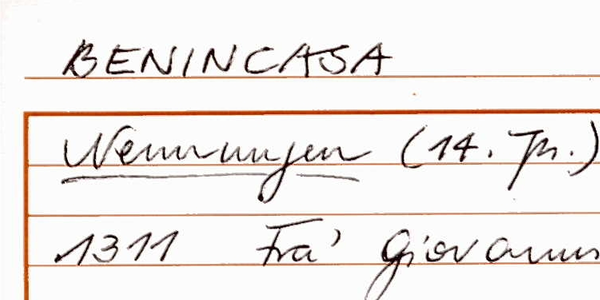 BENINCASA
Nennungen (14. Jh.)
1311 Fra' Giovanni